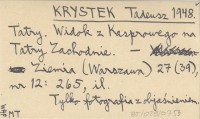 KRYSTEK Tadeusz 1948.
Tatry. Widok z Kasprowego na
Tatry Zachodnie. —
Ziemia (Warszawa) 27 (39),
nr 12: 265, il.
Tylko fotografia z objaśnieniem.
MT